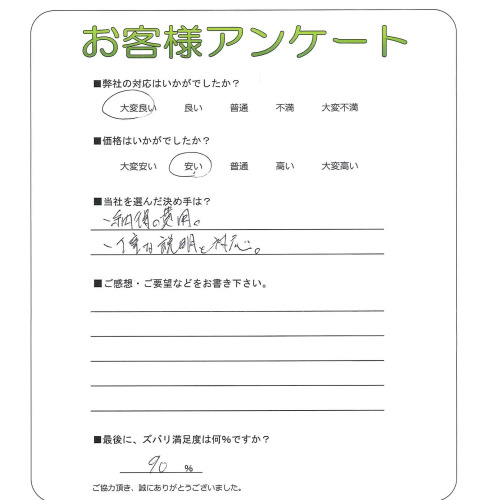 お客様アンケート
■弊社の対応はいかがでしたか？
大変良い 良い 普通 不満 大変不満
■価格はいかがでしたか？
大変安い 安い 普通 高い 大変高い
■当社を選んだ決め手は？
・納得の費用。
・丁寧な説明と対応。
■ご感想・ご要望などをお書き下さい。
■最後に、ズバリ満足度は何%ですか？
90 %
ご協力頂き、誠にありがとうございました。